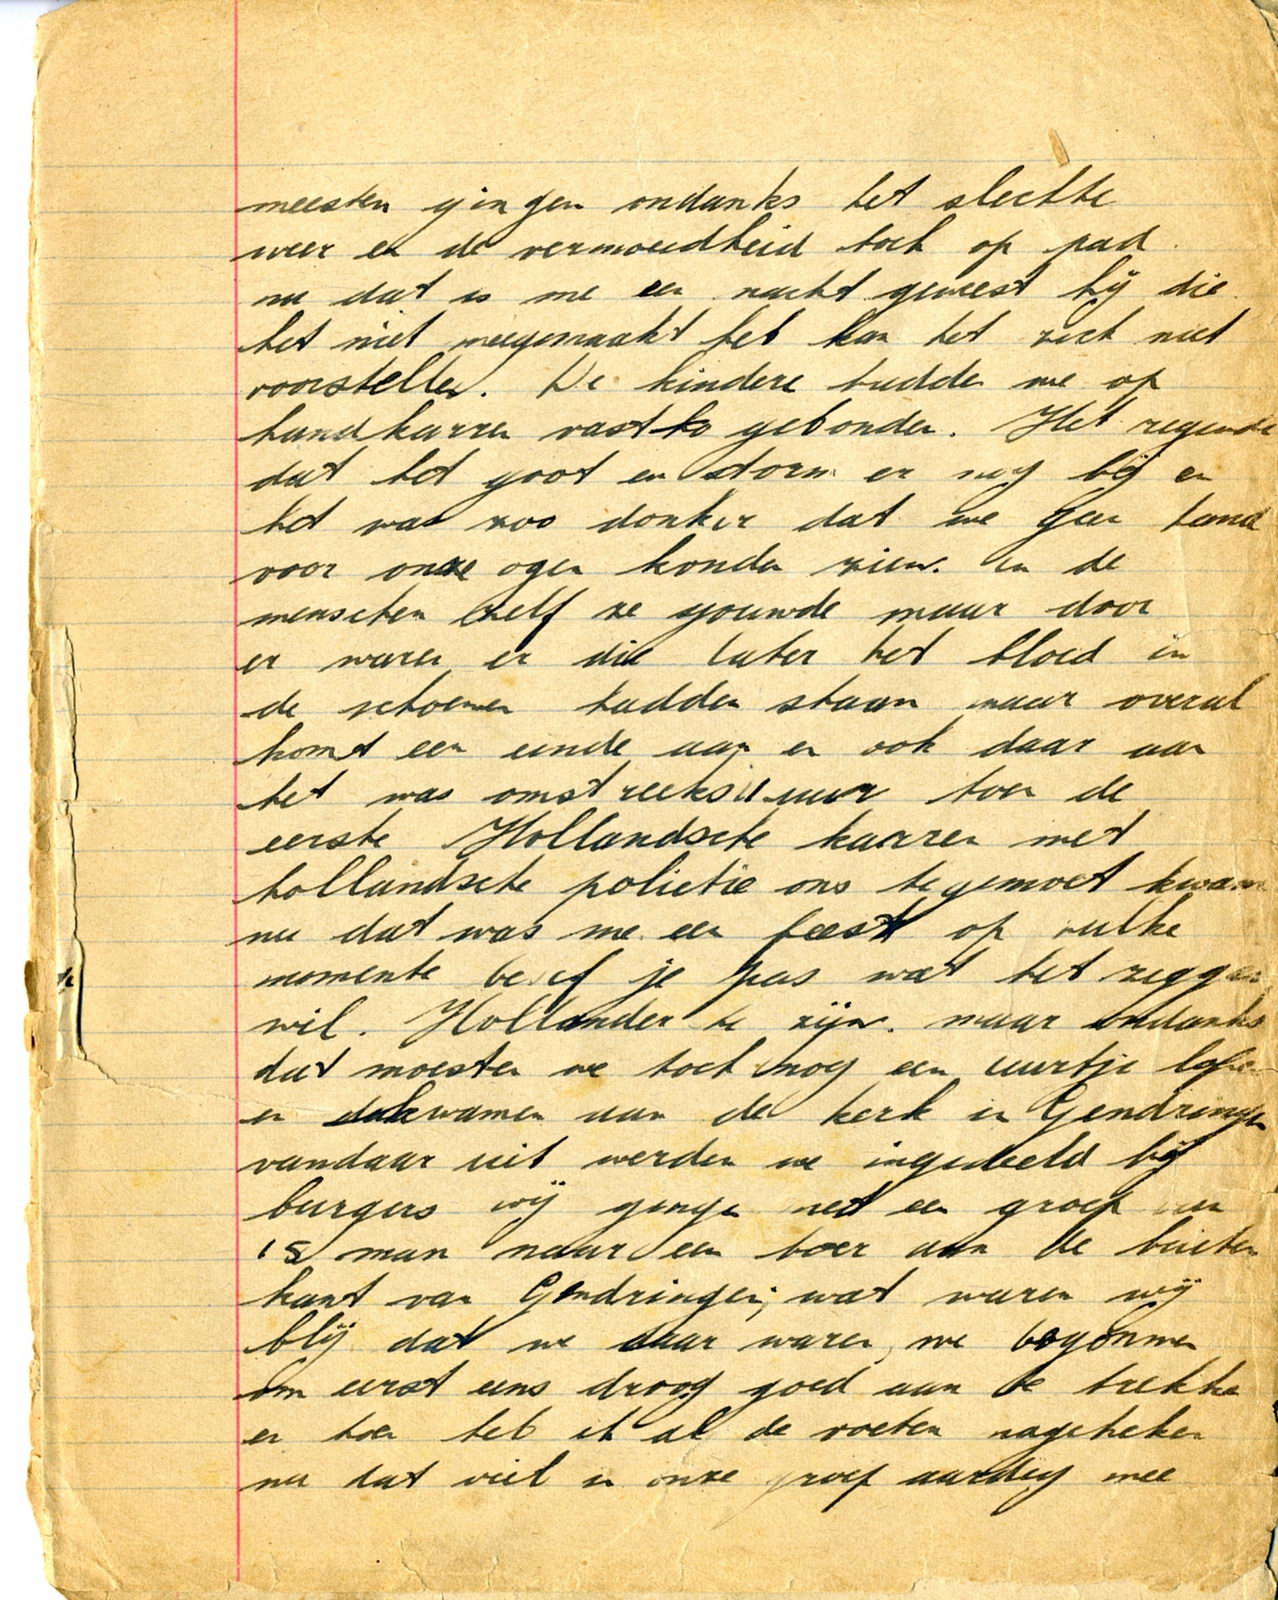 meesten gingen ondanks het slechte
weer en de vermoeidheid toch op pad.
nu dat is me een nacht geweest hij die
het niet meegemaakt heb kan het zich niet
voorstellen. De kindere hadden we op
handkarren vast gebonden. Het regende
dat het goot en storm er nog bij en
het was zoo donker dat we geen hand
voor onze ogen konden zien. En de
menschen zelf ze gouwde maar door
er waren er die later het bloed in
de schoenen hadden staan maar overal
komt een einde aan en ook daar aan
het was omstreeks 11 uur toen de
eerste Hollandsche karren met
hollandsche polietie ons tegemoet kwam
nu dat was me een feest op zulke
momente besef je pas wat het zeggen
wil. Hollander te zijn. maar ondanks
dat moesten we toch nog een uurtje lopen
en kwamen aan de kerk in Gendringen
vandaar uit werden we ingedeeld bij
burgers wij gingen met een groep van
15 man naar een boer aan de buiten
kant van Gendringen, wat waren wij
blij dat we daar waren, we begonnen
om eerst eens droog goed aan te trekke
en toen heb ik al de voeten nagekeken
nu dat viel in onze groep aardig mee